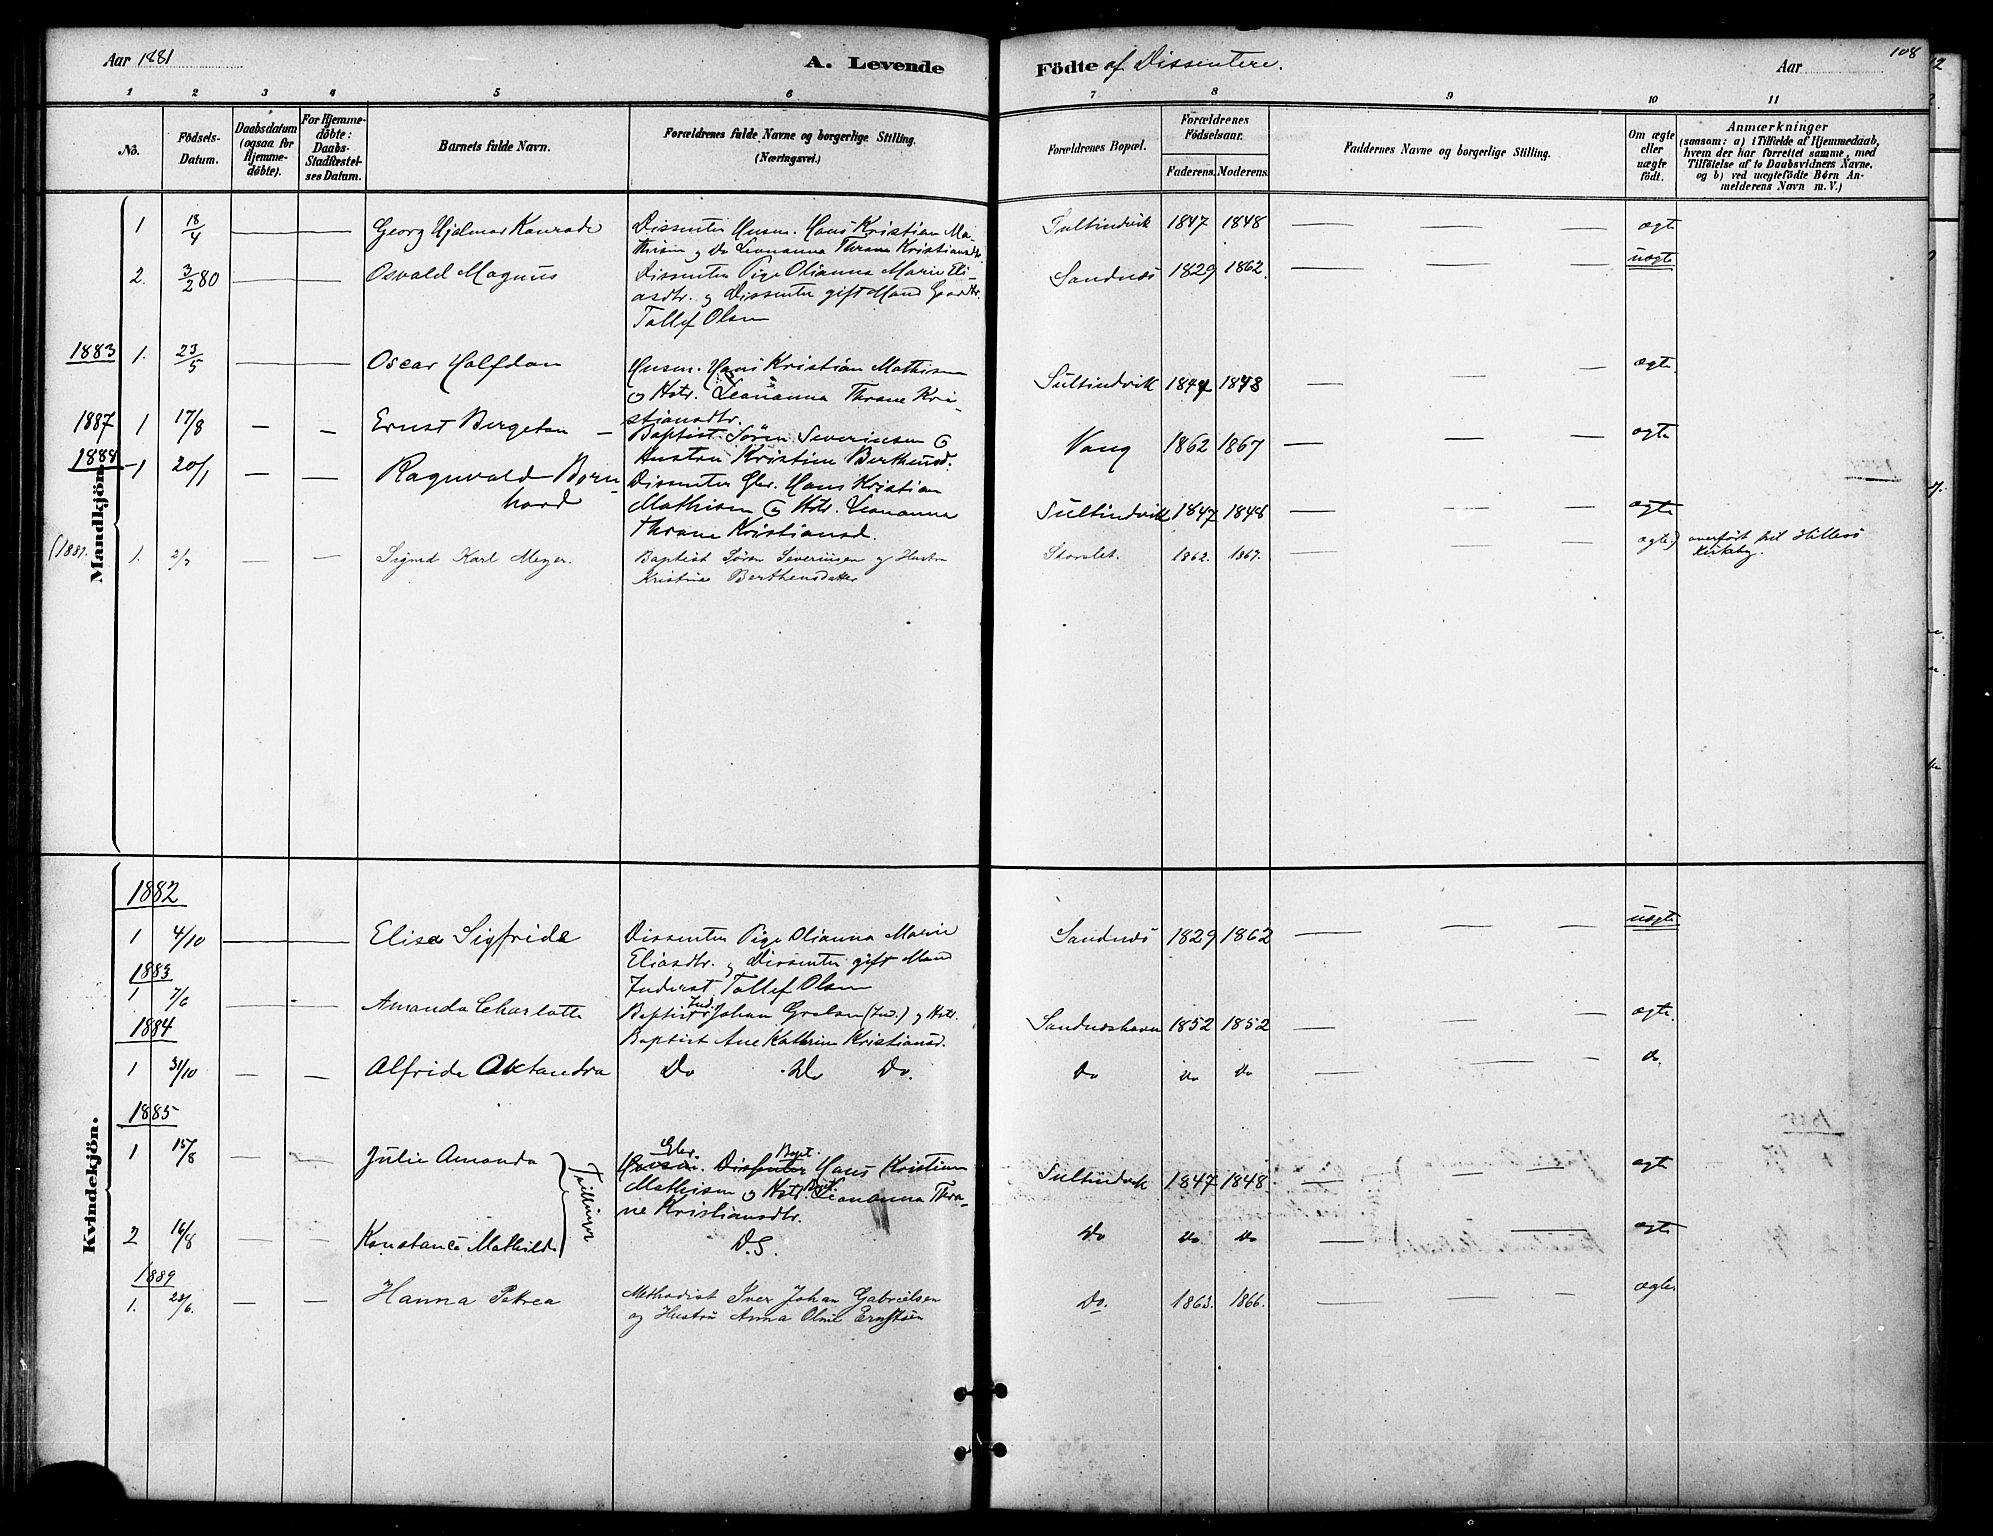 Aar 1881 A. Levende Födte af Dissentere. Aar 108
1 2 3 4 5 6 7 8 9 10 11
No.
Födsels-Datum.
Daabsdatum (ogsaa for Hjemme-döbte).
For Hjemme-döbte: Daabs-Stadfæstel-ses Datum.
Barnets fulde Navn.
Forældrenes fulde Navne og borgerlige Stilling. (Næringsvei.)
Forældrenes Bopæl.
Forældrenes Födselsaar.
Faderens. Moderens.
Faddernes Navne og borgerlige Stilling.
Om ægte eller uægte født.
Anmærkninger
(saasom: a) i Tilfælde af Hjemmedaab,
hvem der har forrettet samme, med
Tilföielse af to Daabsvidners Navne.
og b) ved uægtefødte Børn An-
melderens Navn m. V.)
Mandkjön.
1 18/4 — — Georg Hjalmar Konrade Dissenter Husm. Hans Kristian Ma- Sultindvik 1847 1848 — — — ægte
thisen og Do Leonanna Thrane Kristiansdtr.
2. 3/2 80 — — Osvald Magnus Dissenter Pige Olianna Marie Eli- Sandnæs 1829 1862. — — — uægte
asdtr. og Dissenter gift Mand
Tollef Olsen
1883 1. 23/5 — — Oscar Halfdan Husm. Hans Kristian Mathisen Sultindvik 1847 1848 — — — ægte.
og Hstr. Leonanna Thrane Kri-
stiansdtr.
1887 1 17/8 — — Ernst Bergeton — Baptist Søren Severinsen & Vang 1862 1867 — — — ægte
Hustru Kristine Berthensd.
1888 1 20/1 — — Ragnvald Bern- Dissenter Gbr. Hans Kristian
hard Mathisen & Hstr. Leonanna Sultindvik 1847 1848 — — — ægte
Thrane Kristiansd.
(1889. 1. 2/3 — — Sigurd Karl Meyer. Baptist Søren Severinsen og Hustru Storslet. 1862. 1867. — — — ægte) overført til Hillesö
Kristine Berthensdatter Kirkebg.
Kvindekjön.
1882
1 4/10 — Elise Sigfride Dissenter Pige Olianna Marie Sandnæs 1829 1862 — — — uægte
Eliasdtr. og Dissenter gift Mand
Inderst Tollef Olsen
1883
1 7/6 — — Amanda Charlotte Baptist Ind. Johan (Ind.) og Hstr. Sandneshavn 1852 1852 — — — ægte.
Baptist Ane Kathrine Kristiansd.
1884
1 31/10 — — Alfride Do Do Do. Do Do Do — — — do
1885
1 15/8 — — Julie Amanda Gbr. Bapt.
Dissenter Hans Kristian Sultindvik 1847 1848 — — — ægte
Mathisen og Hstr. Bapt. Leonanna Thra-
ne Kristiansdtr.
Tvillinger
2 16/8 Konstance Mathilde D.S. Do Do Do — — ægte
1889
1. 28/6. — — Hanna Petrea Methodist Iver Johan Gabrielsen Do. 1863. 1866. — — — ægte
og Hustru Anna Ernstsen